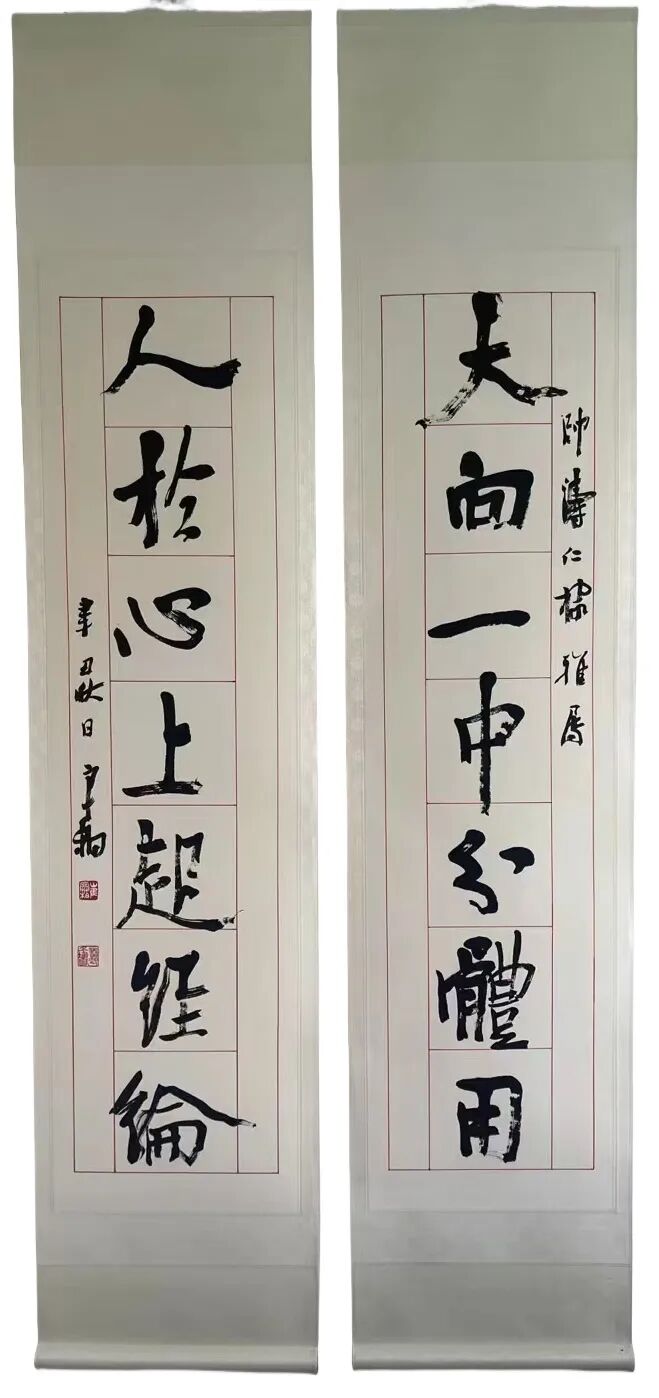 天向一中分體用
帥濤仁棣雅屬
人於心上起經綸
辛丑秋日